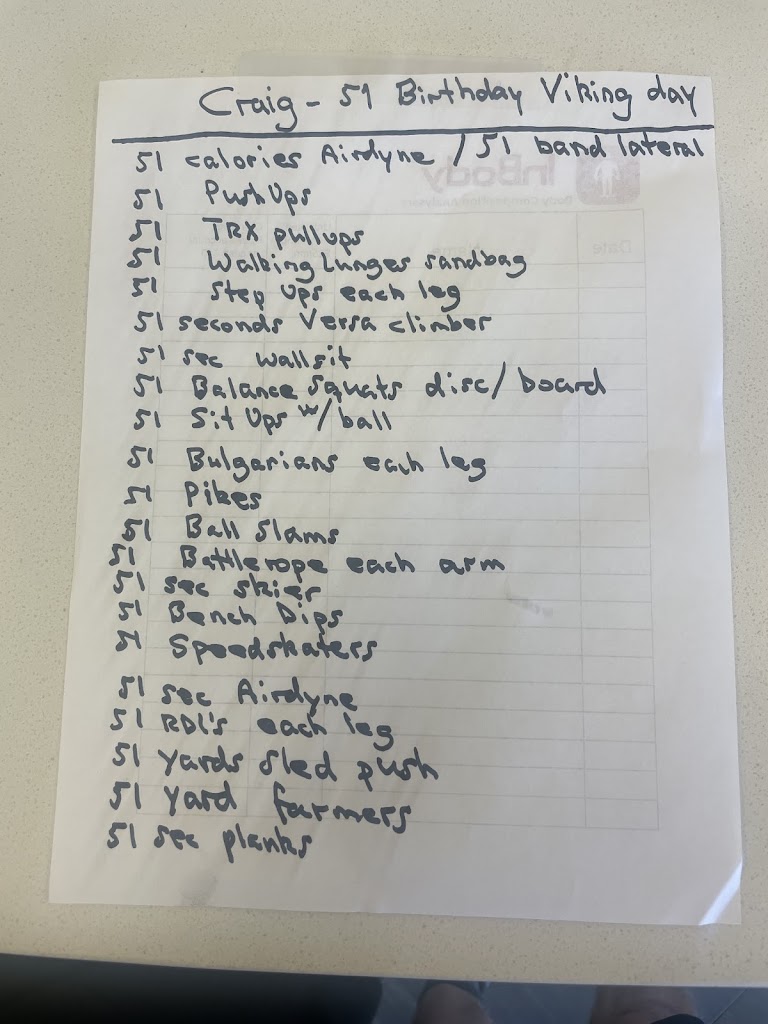 Craig - 51 Birthday Viking day
51 calories Airdyne / 51 band lateral
51 PushUps
51 TRX pullups
51 Walking Lunges sandbag
51 Step Ups each leg
51 seconds Versa climber
51 sec wallsit
51 Balance Squats disc/board
51 Sit Ups w/ball
51 Bulgarians each leg
51 Pikes
51 Ball Slams
51 Battlerope each arm
51 sec skier
51 Bench Dips
51 Speedskaters
51 sec Airdyne
51 RDL's each leg
51 yards sled push
51 yard farmers
51 sec planks
InBody
Body Composition Analyzers
Date
Name